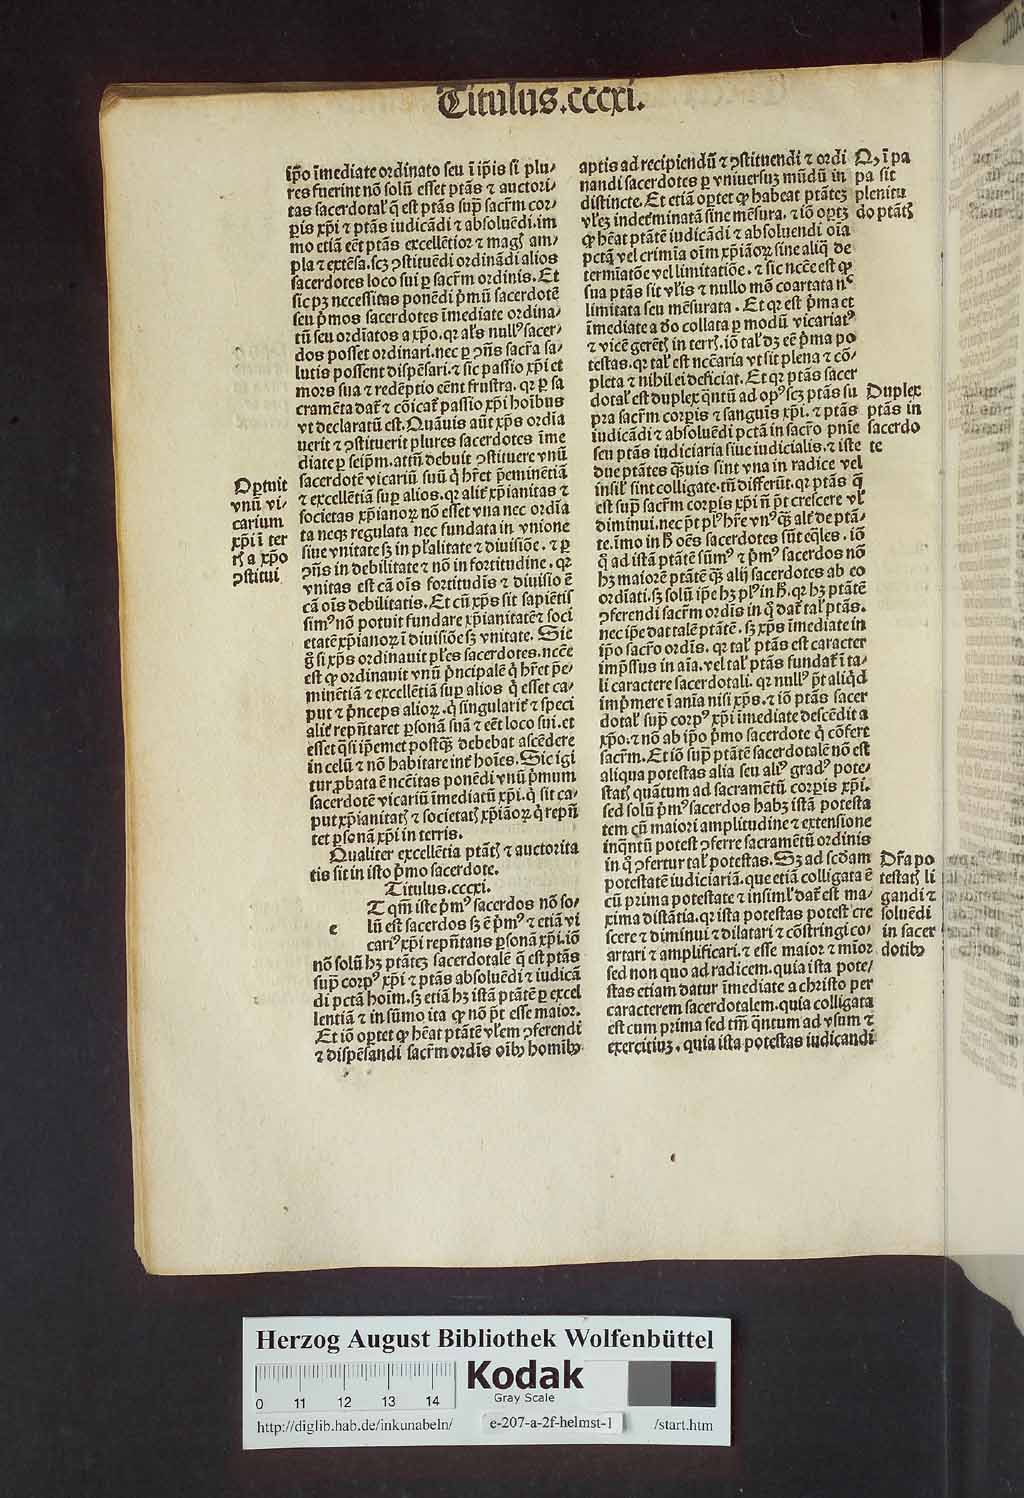 Titulus.cccxi.
ip̄o īmediate ordinato seu ī ip̄is si plu⸗
res fuerint nō solū esset ptās ⁊ auctori⸗
tas sacerdotal' q̄ est ptās sup̄ sacr̄m cor⸗
pis xp̄i ⁊ ptās iudicādi ⁊ absoluēdi.im
mo etiā eēt ptās excellētior ⁊ mag͛ am⸗
pla ⁊ extēsa.scꝫ ꝯstituēdi ordinādi alios
sacerdotes loco sui ꝑ sacr̄m ordinis. Et
sic pꝫ necessitas ponēdi p̄mū sacerdotē
seu p̄mos sacerdotes īmediate ordina⸗
tū seu ordīatos a xp̄o.qꝛ al's nullꝰ sacer⸗
dos posset ordinari.nec ꝑ ꝯn̄s sacr̄a sa⸗
lutis possent dispēsari.⁊ sic passio xp̄i et
mors sua ⁊ redēptio eēnt frustra. qꝛ ꝑ sa
cramēta dat̄ ⁊ cōicat̄ passio xp̄i hoībus
vt declaratū est. Quāuis aūt xp̄s ordīa
uerit ⁊ ꝯstituerit plures sacerdotes īme
diate ꝑ seip̄m.attn̄ debuit ꝯstituere vnū
sacerdotē vicariū suū q̇ hr̄et p̄eminētiā
⁊ excellētiā suꝑ alios.qꝛ alit̄ xp̄ianitas ⁊
societas xp̄ianoꝝ nō esset vna nec ordīa
ta neqꝫ regulata nec fundata in vnione
siue vnitate sꝫ in pl'alitate ⁊ diuisiōe.⁊ ꝑ
ꝯn̄s in debilitate ⁊ nō in fortitudine.qꝛ
vnitas est cā oīs fortitudīs ⁊ diuisio ē
cā oīs debilitatis. Et cū xp̄s sit sapiētis
simꝰ nō potuit fundare xp̄ianitatē ⁊ soci
etatē xp̄ianoꝝ ī diuisiōe sꝫ vnitate. Sic
g̊ si xp̄s ordinauit pl'es sacerdotes.nccē
est ꝙ ordinauit vnū p̄ncipalē q̇ hr̄et p̄e⸗
minētiā ⁊ excellētiā suꝑ alios q̇ esset ca⸗
put ⁊ p̄nceps alioꝝ.q̇ singularit̄ ⁊ speci
alit̄ repn̄taret ꝑsonā suā ⁊ eēt loco sui.et
esset q̄si ip̄emet postq̄ꝫ debebat ascēdere
in celū ⁊ nō habitare int̄ hoīes. Sic igi
tur ꝓbata ē nccītas ponēdi vnū p̄mum
sacerdotē vicariū īmediatū xp̄i.q̇ sit ca⸗
put xp̄ianitat͛ ⁊ societat͛ xp̄iāoꝝ q̇ repn̄
tet ꝑsonā xp̄i in terris.
Qualiter excellētia ptāt͛ ⁊ auctorita
tis sit in isto p̄mo sacerdote.
Titulus.cccxi.
e
T qm̄ iste p̄mꝰ sacerdos nō so⸗
lū est sacerdos sꝫ ē p̄mꝰ ⁊ etiā vi
cariꝰ xp̄i repn̄tans ꝑsonā xp̄i.iō
nō solū hꝫ ptātez sacerdotalē q̄ est ptās
suꝑ corpꝰ xp̄i ⁊ ptās absoluēdi ⁊ iudicā
di pctā hoīm.sꝫ etiā hꝫ istā ptātē ꝑ excel
lentiā ⁊ in sūmo ita ꝙ nō pt̄ esse maior.
Et iō oꝑtet ꝙ hēat ptātē vl'em ꝯferendi
⁊ dispēsandi sacr̄m ordīs oībꝫ homībꝫ
Oꝑtuit
vnū vi⸗
carium
xp̄i ī ter
r͛ a xp̄o
ꝯstitui
aptis ad recipiendū ⁊ ꝯstituendi ⁊ ordi
nandi sacerdotes ꝑ vniuersuꝫ mūdū in
distincte. Et etiā oꝑtet ꝙ habeat ptātez
vl'eꝫ indetermīatā sine mēsura.⁊ iō oꝑtꝫ
ꝙ hēat ptātē iudicādi ⁊ absoluendi oīa
pctā vel crimīa oīm xp̄iāoꝝ sine aliq̄ de
termīatōe vel limitatiōe.⁊ sic nccē est ꝙ
sua ptās sit vl'is ⁊ nullo mō coartata nͨ
limitata seu mēsurata. Et qꝛ est p̄ma et
īmediate a deo collata ꝑ modū vicariatꝰ
⁊ vicē gerēt͛ in terr͛.iō tal' dꝫ eē p̄ma po
testas.qꝛ tal' est nccāria vt sit plena ⁊ cō⸗
pleta ⁊ nihil ei deficiat. Et qꝛ ptās sacer
dotal' est duplex q̄ntū ad opꝰ scꝫ ptās su
pra sacr̄m corpis ⁊ sanguīs xp̄i.⁊ ptās
iudicādi ⁊ absoluēdi pctā in sacr̄o pn̄ie
seu ptās iudiciaria siue iudicialis.⁊ iste
due ptātes q̄uis sint vna in radice vel
insil' sint colligate.tn̄ differūt.qꝛ ptās q̄
est sup̄ sacr̄m corpis xp̄i n̄ pt̄ crescere vl'
diminui.nec pt̄ plꝰ hr̄e vnꝰ q̄ꝫ alt̄ de ptā⸗
te.īmo in h̊ oēs sacerdotes sūt eq̄les.iō
q̇ ad istā ptātē sūmꝰ ⁊ p̄mꝰ sacerdos nō
hꝫ maiorē ptātē q̄ꝫ alij sacerdotes ab eo
ordīati.sꝫ solū ip̄e hꝫ plꝰ in h̊.qꝛ hꝫ ptātē
ꝯferendi sacr̄m ordīs in q̇ dat̄ tal' ptās.
nec ip̄e dat talē ptātē.sꝫ xp̄s īmediate in
ip̄o sacr̄o ordīs.qꝛ tal' ptās est caracter
imp̄ssus in aīa.vel tal' ptās fundat̄ ī ta⸗
li caractere sacerdotali.qꝛ nullꝰ pt̄ aliq̇d
imp̄mere ī anīa nisi xp̄s.⁊ iō ptās sacer
dotal' sup̄ corpꝰ xp̄i īmediate descēdit a
xp̄o.⁊ nō ab ip̄o p̄mo sacerdote q̇ cōfert
sacr̄m. Et iō sup̄ ptātē sacerdotalē nō est
aliqua potestas alia seu aliꝰ gradꝰ pote⸗
stat͛ quātum ad sacramētū corpis xp̄i.
sed solū p̄mꝰ sacerdos habꝫ istā potesta
tem cū maiori amplitudine ⁊ extensione
inq̄ntū potest ꝯferre sacramētū ordinis
in q̇ ꝯfertur tal' potestas. Sꝫ ad scd̄am
potestatē iudiciariā.que etiā colligata ē
cū prima potestate ⁊ insimul' dat̄ est ma⸗
xima distātia.qꝛ ista potestas potest cre
scere ⁊ diminui ⁊ dilatari ⁊ cōstringi co⸗
artari ⁊ amplificari.⁊ esse maior ⁊ mīor
sed non quo ad radicem.quia ista pote⸗
stas etiam datur īmediate a christo per
caracterem sacerdotalem.quia colligata
est cum prima sed tm̄ q̄ntum ad vsum ⁊
exercitiuꝫ.quia ista potestas iudicandi
Qꝫ ī pa
pa sit
plenitu
do ptāt͛
Duplex
ptās in
sacerdo
te
Dr̄a po
testat͛ li
gandi ⁊
soluēdi
in sacer
dotibꝫ
Herzog August Bibliothek Wolfenbüttel
0 11 12 13 14
Kodak
Gray Scale
http://diglib.hab.de/inkunabeln/ e-207-a-2f-helmst-1 /start.htm